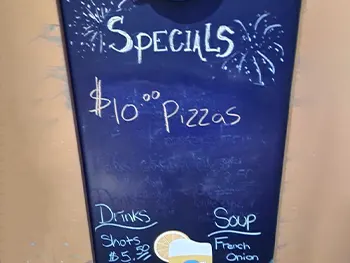 SPECIALS
$10.00 Pizzas
Drinks
Shots
$5.50
Soup
French
Onion